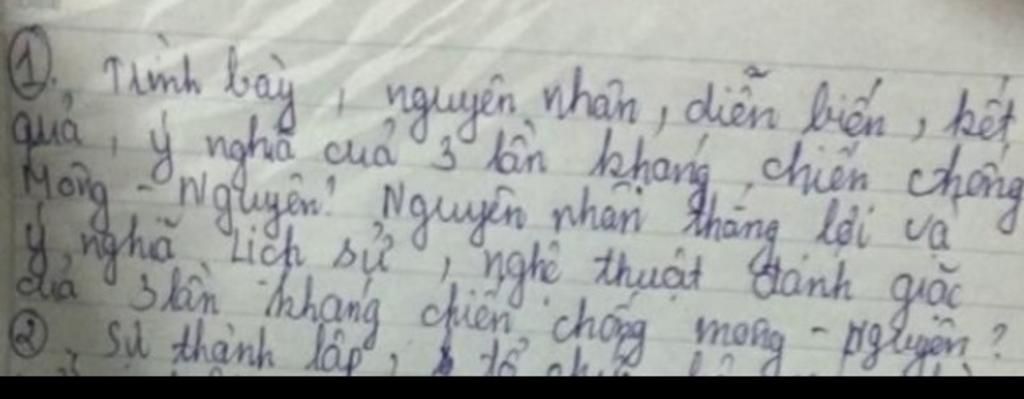 ①. Trình bày, nguyên nhân, diễn biến, kết
quả, ý nghĩa của 3 lần kháng chiến chống
Mông - Nguyên? Nguyên nhân thắng lợi và
ý nghĩa lịch sử, nghệ thuật đánh giặc
của 3 lần kháng chiến chống mông - nguyên?
②, Sự thành lập, tổ